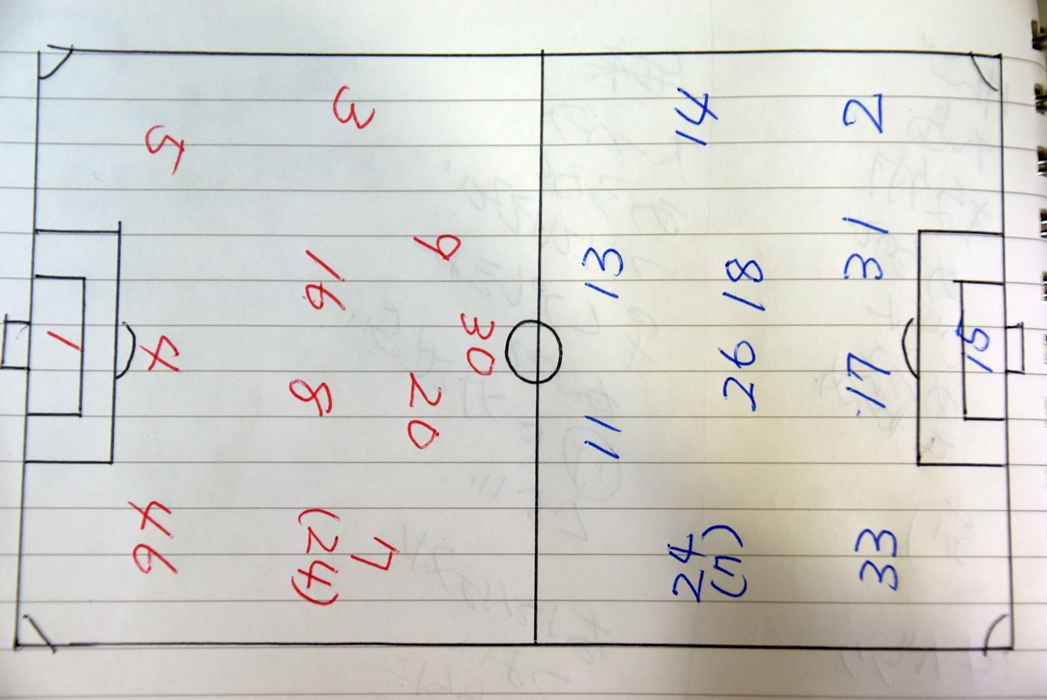 3
5
9
16
30
1
4
8
20
46
7
(24)
14
2
13
18
31
15
26
17
11
24
(7)
33